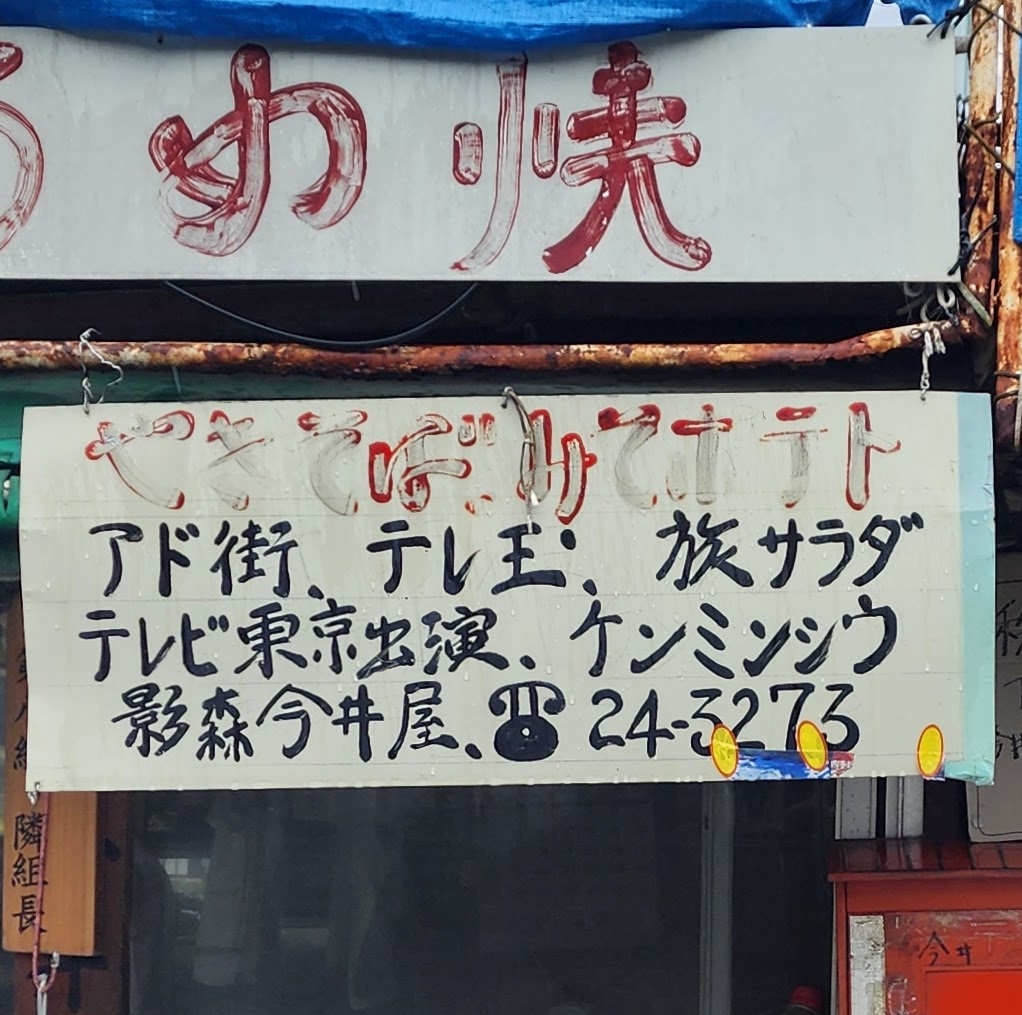 め焼
やきそば、みそポテト
アド街、テレ玉、旅サラダ
テレビ東京出演、ケンミンシウ
影森今井屋、☎24-3273
隣組長
今井